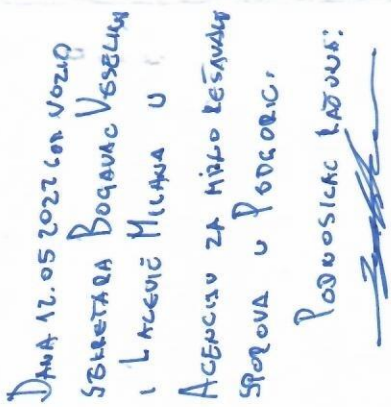 DANA 12.05 2022 GOD VOZIO
SEKRETARA BOGAVAC VESELINA
I LACEVIĆ MILANA U
AGENCIJU ZA MIRNO REŠAVANJE
SPOROVA U PODGORIC.
PODNOSILAC RAČUNA: